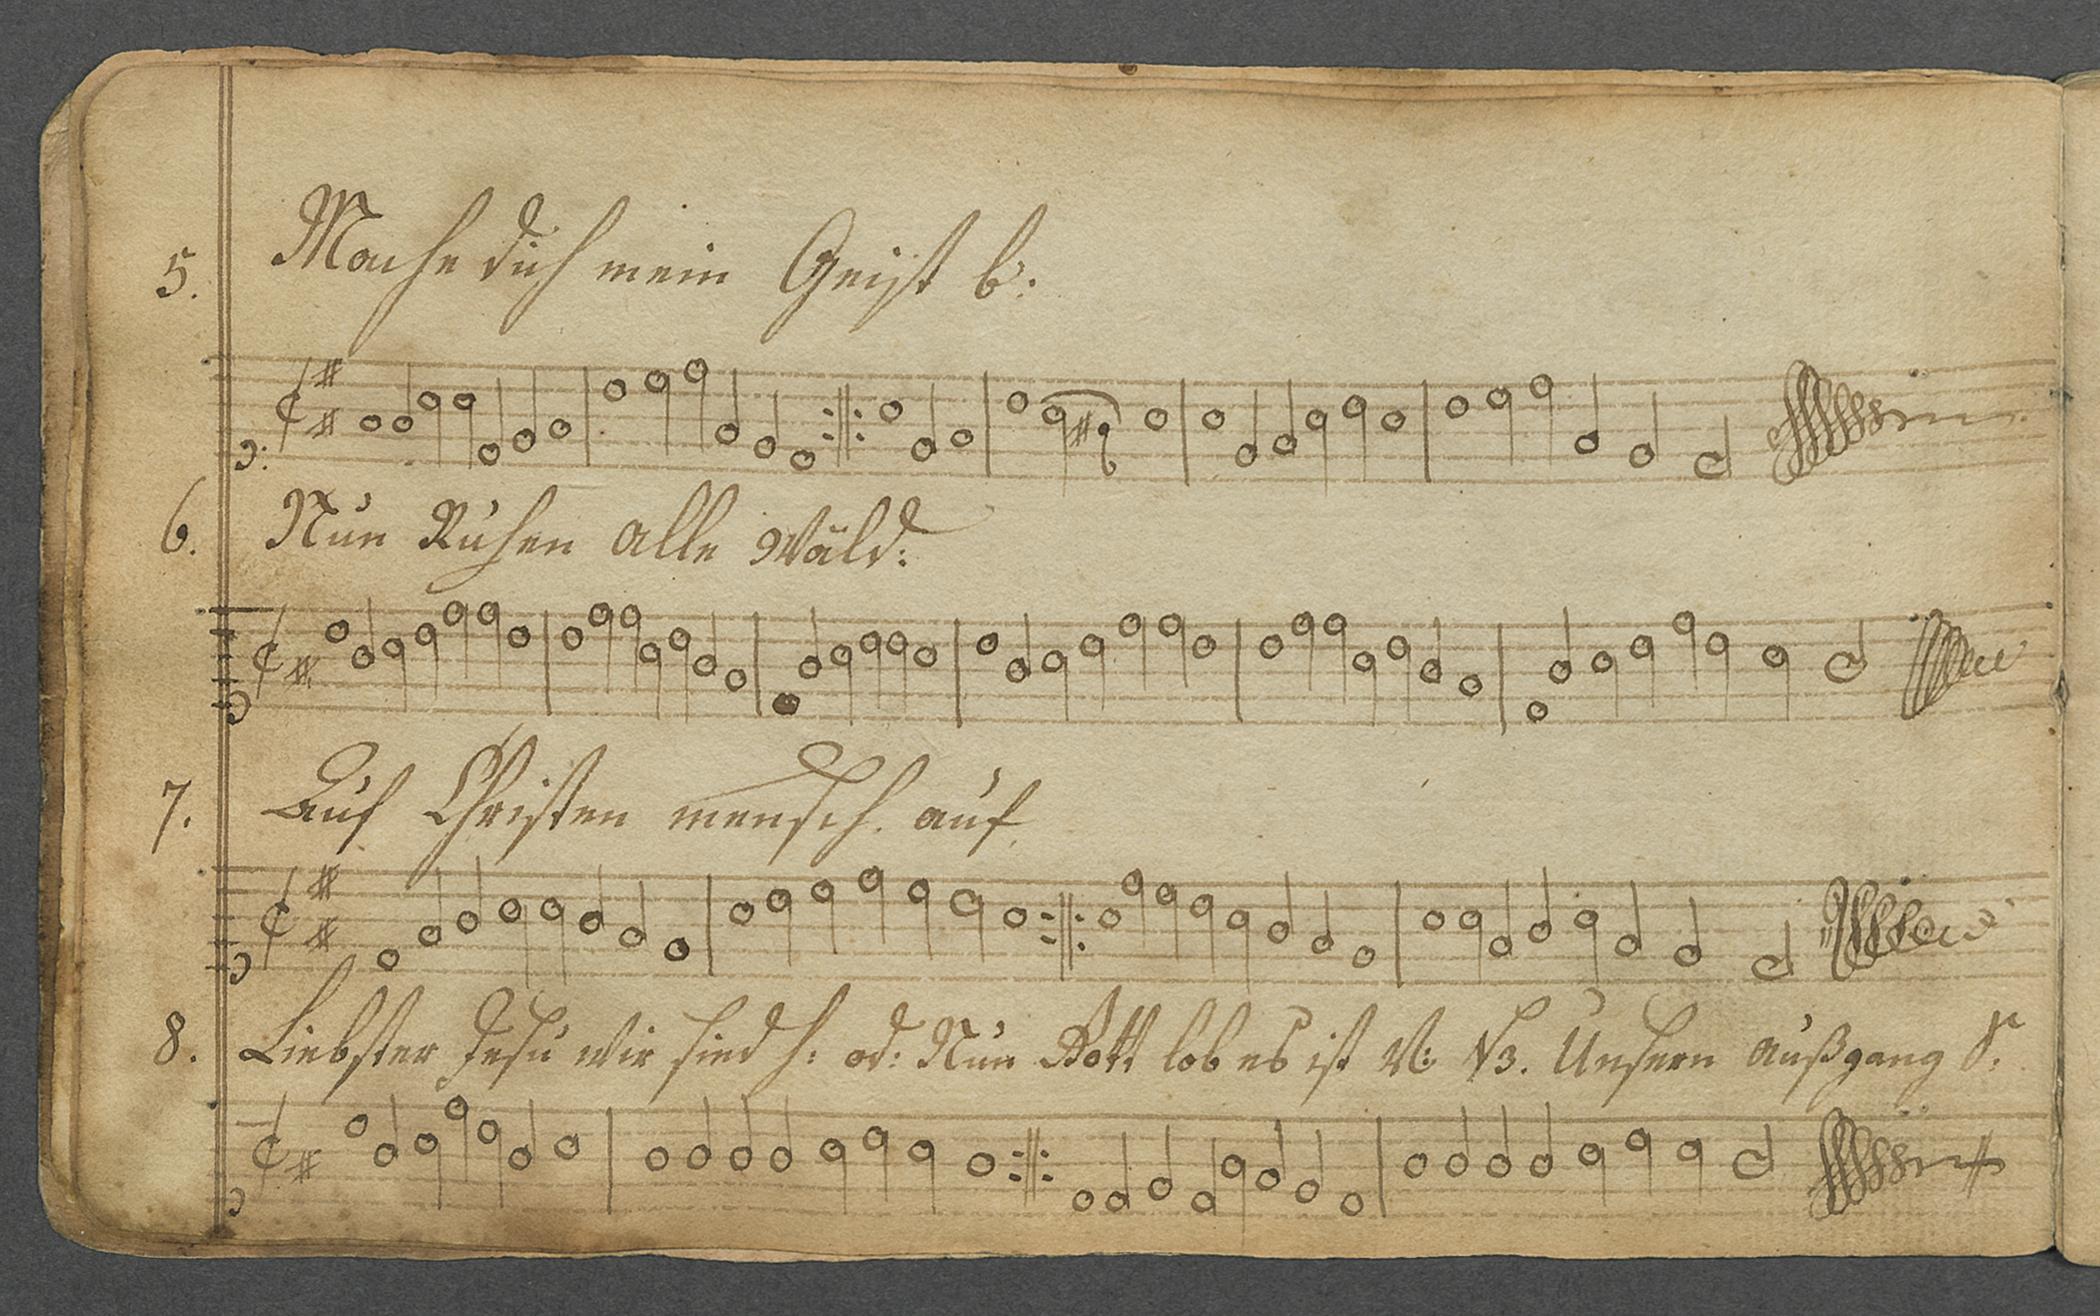 5. Mache dich mein Geist b:
6. Nun Ruhen alle Wäld:
7. Auf Christen mensch. auf
8. Liebster Jesu wir sind h: od: Nun Gott lob es ist V: N3. Unsern außgang S.